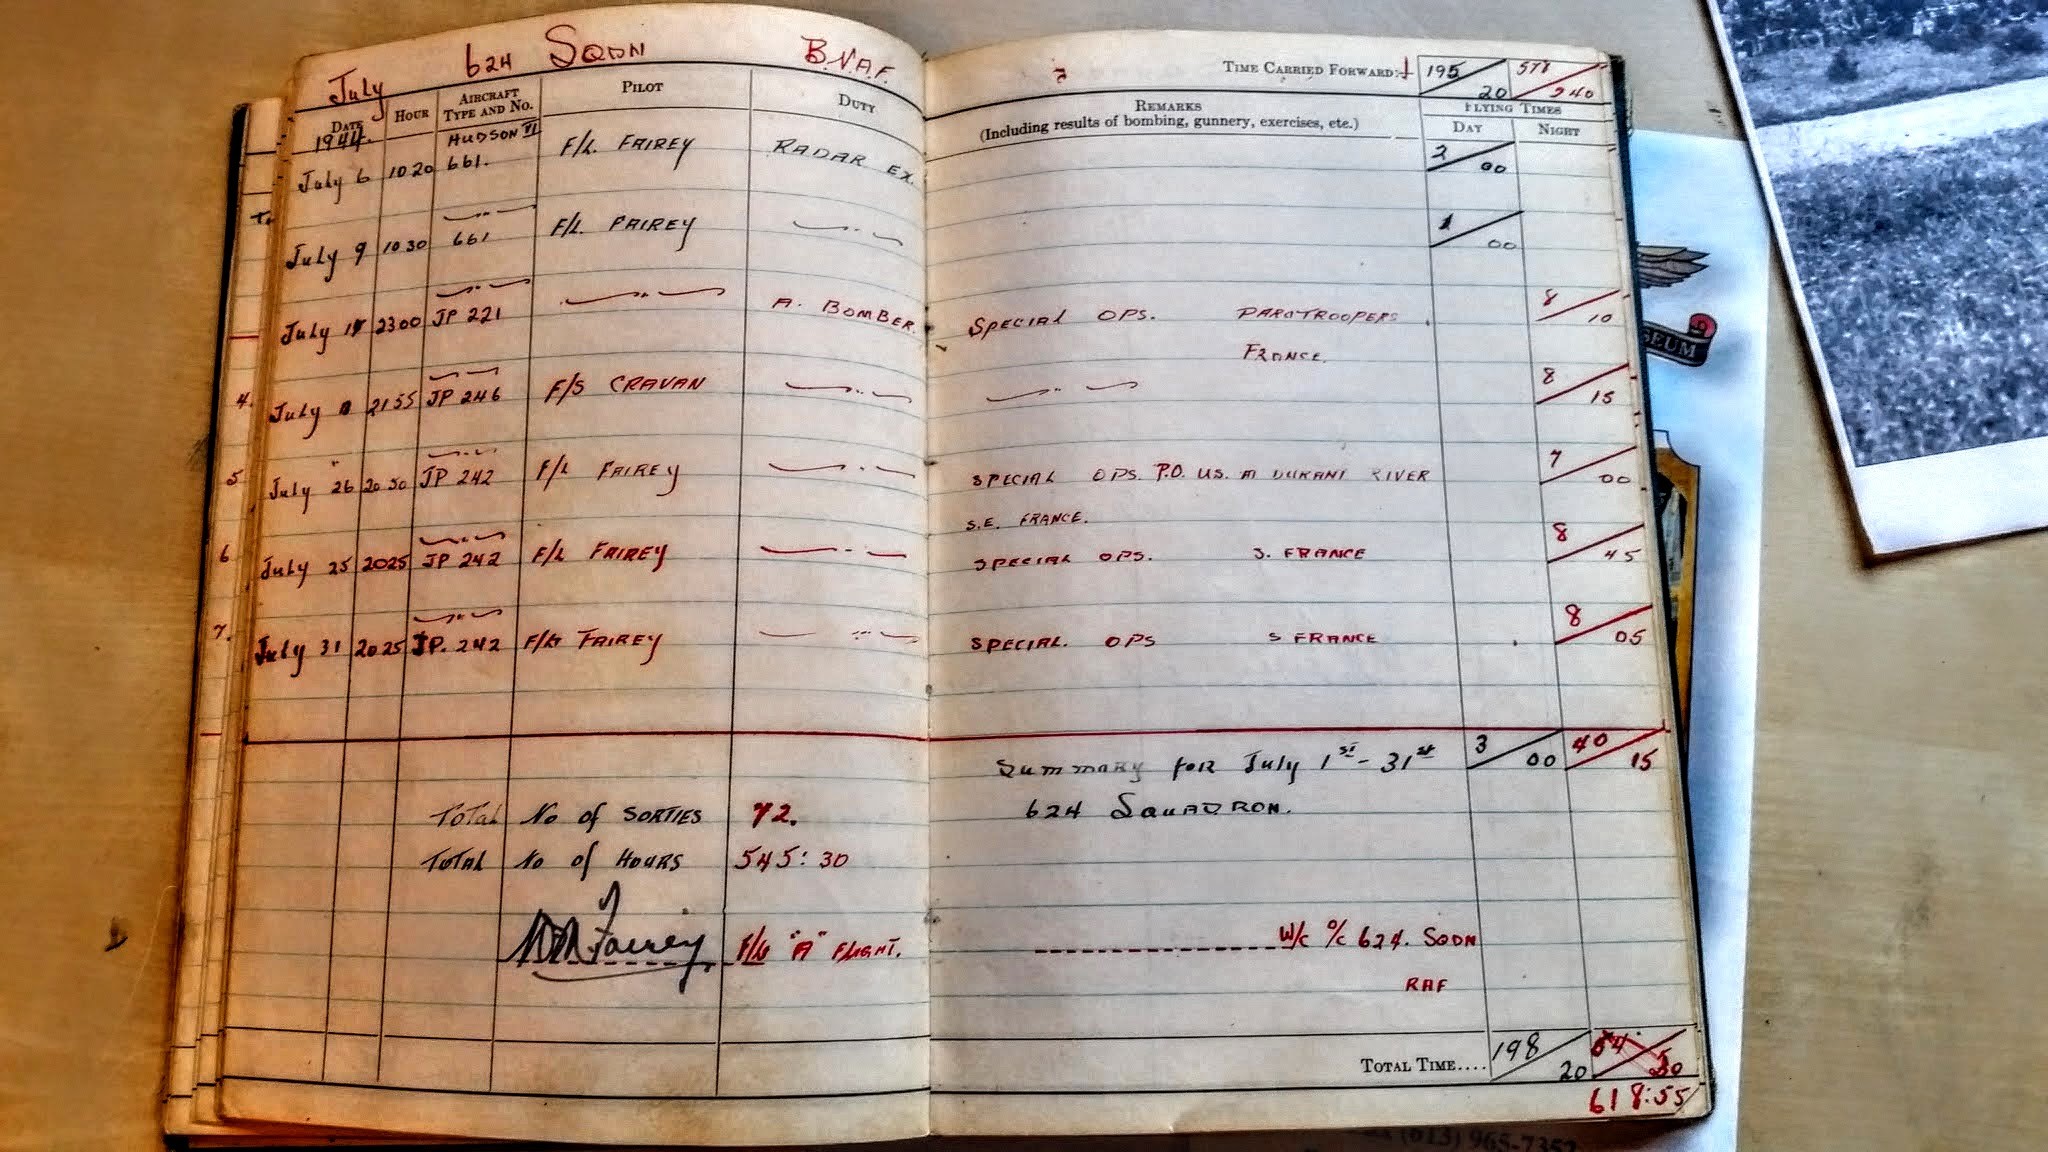 July 624 SQDN B.N.A.F.
DATE HOUR AIRCRAFT TYPE AND NO. PILOT DUTY
REMARKS
(Including results of bombing, gunnery, exercises, etc.)
TIME CARRIED FORWARD: 195 20 578 40
FLYING TIMES
DAY NIGHT
1944. HUDSON VI
July 6 1020 661. F/L. FAIREY RADAR EX. 2 00
July 9 1030 661 F/L. FAIREY 1 00
July 2300 JP 221 A. BOMBER. SPECIAL OPS. PARATROOPERS 8 10
FRANCE.
4. July 2155 JP 246 F/S CRAVAN 8 15
5 July 26 JP 242 F/L FAIREY SPECIAL OPS. P.O. U.S. RIVER 7 00
S.E. FRANCE.
6 July 25 2025 JP 242 F/L FAIREY SPECIAL OPS. S. FRANCE 8 45
7. July 31 2025 JP. 242 F/L FAIREY SPECIAL. OPS S FRANCE 8 05
Summary for July 1st - 31st 3 00 40 15
624 SQUADRON.
TOTAL No of SORTIES 72.
TOTAL No of HOURS 545:30
Fairey "A" FLIGHT. W/C O/C 624. SQDN
RAF
TOTAL TIME.... 198 20
618:55
SEUM
(613) 965-7352